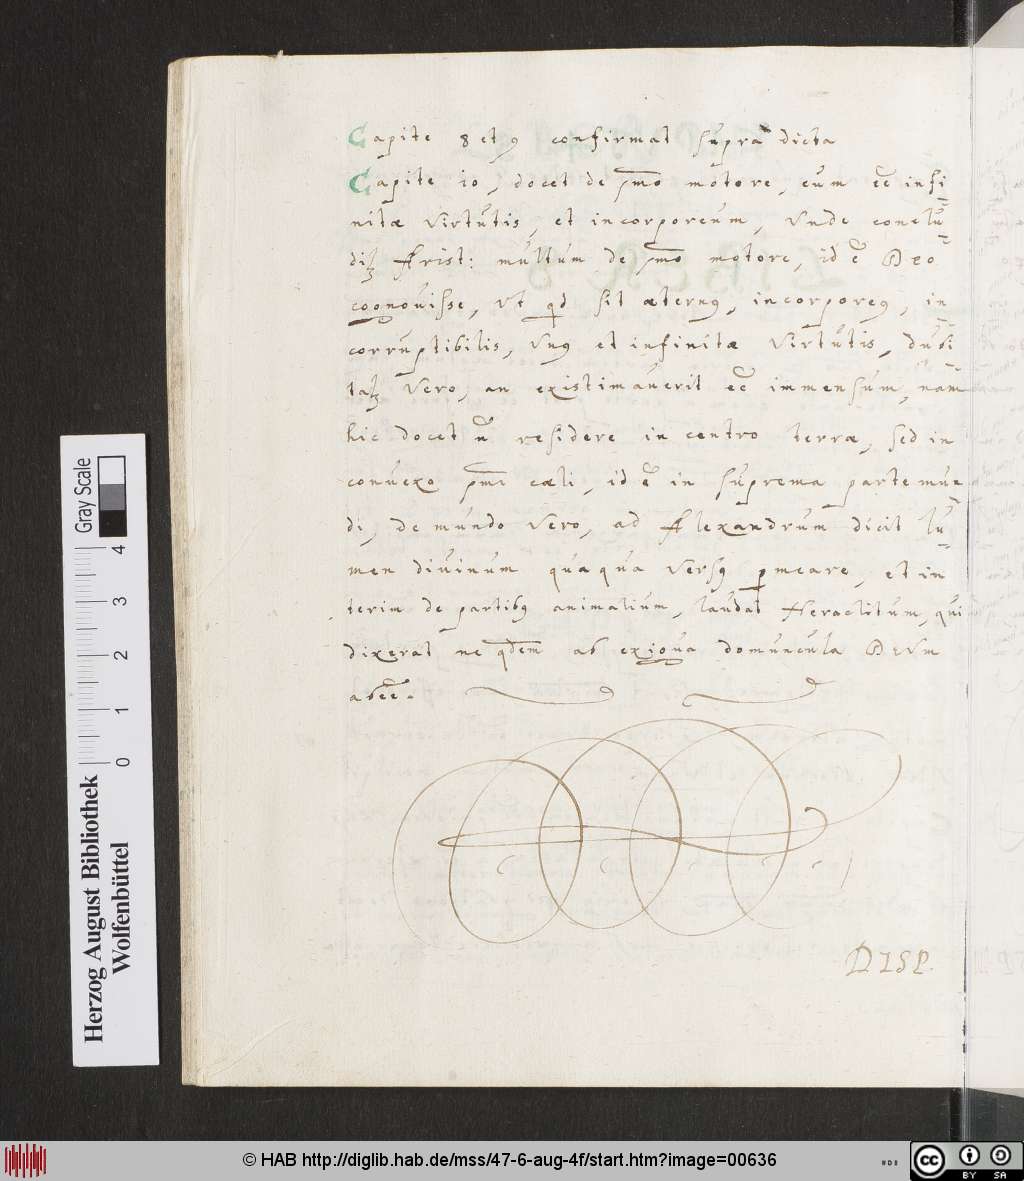 Capite 8 et 9 confirmat supra dicta
Capite 10, docet de p̄mo motore, eum eē infi
nitæ virtutis, et incorporeum, Vnde conclu-
ditꝛ Arist: multum de p̄mo motore, id ē Deo
cognouisse, Vt qd sit æternꝰ, incorporeꝰ, in-
corruptibilis, Vnꝰ et infinitæ Virtutis, dubi
tatꝛ Vero, an existimauerit eē immensum, nam
hic docet n̄ residere in centro terræ, sed in
conuexo p̄mi cæli, id ē in suprema parte mun-
di, de mundo Vero, ad Alexandrum dicit lu-
men diuinum quaqua Versꝰ ꝑmeare, et in
terim de partibꝰ animalium, laudat Heraclitum, qui
dixerat ne qdem ab exigua domuncula Deum
abeē.
DISP.
Herzog August Bibliothek
Wolfenbüttel
0 1 2 3 4
Gray Scale
© HAB http://diglib.hab.de/mss/47-6-aug-4f/start.htm?image=00636
HAB
cc BY SA